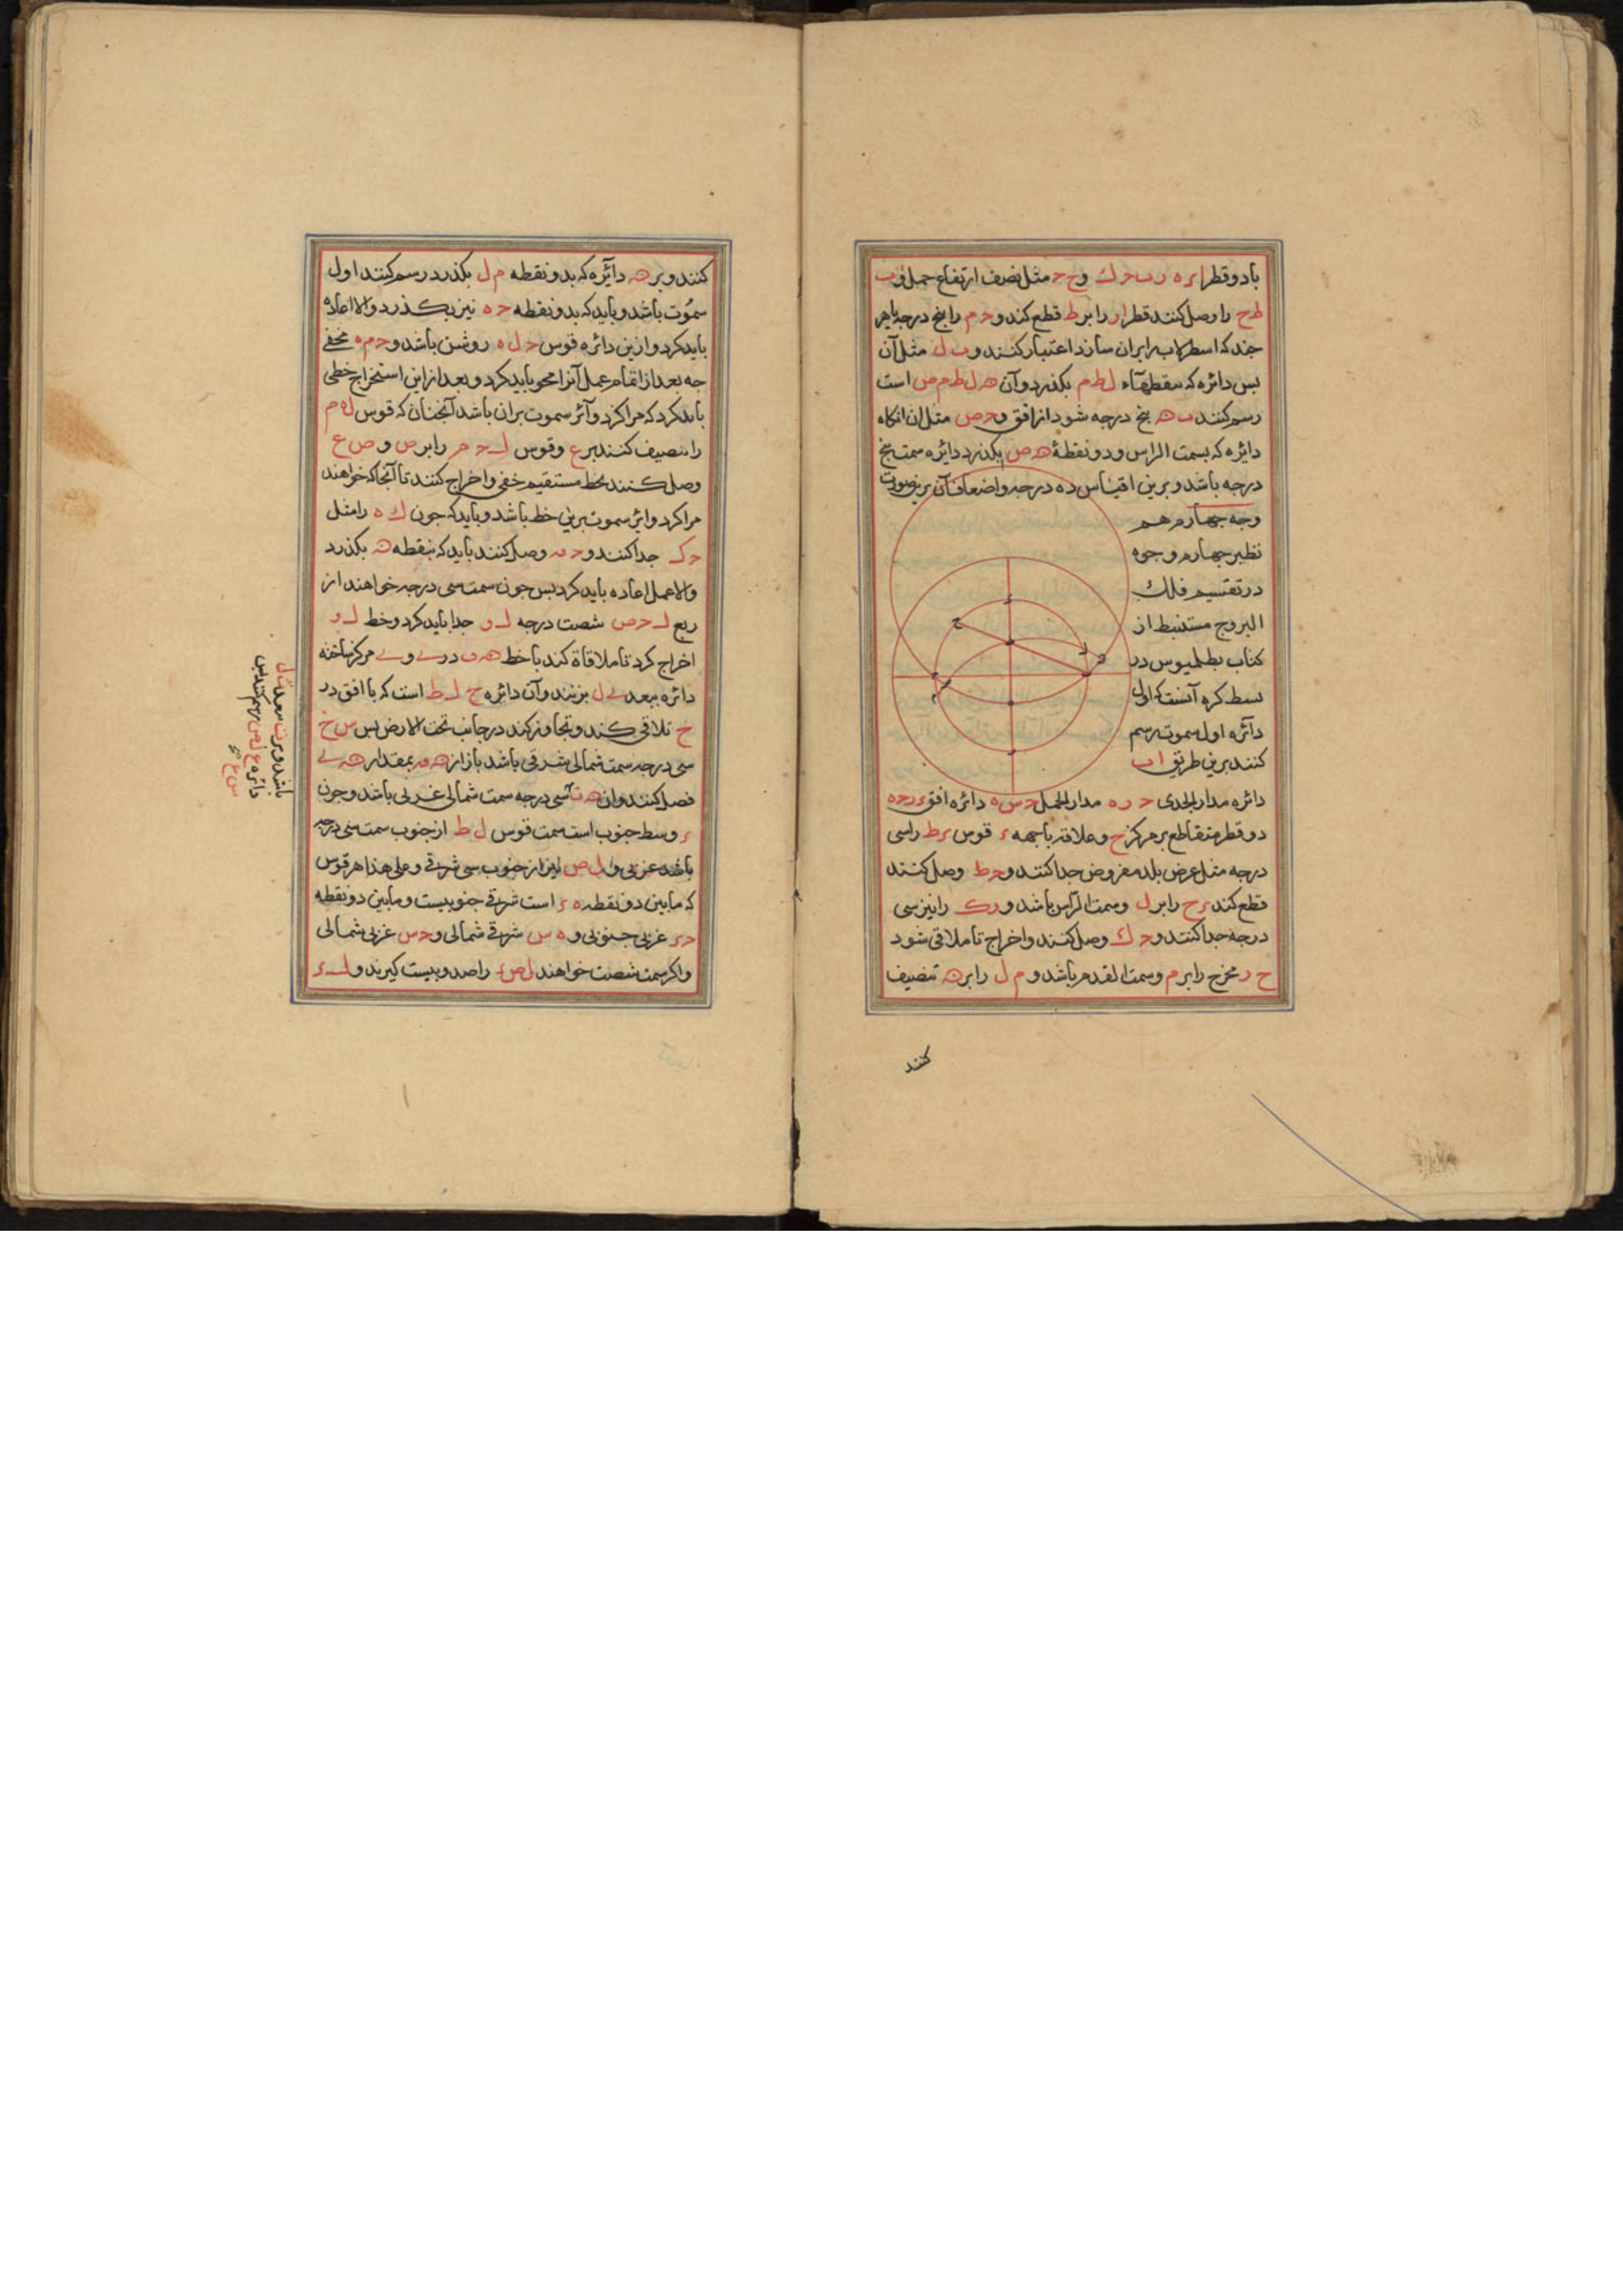 با دو قطر ا ر ه ر ب د ك و ج ح مثل نصف ارتفاع حمل و ب
ط ح را وصل کنند قطر ا ر را بر ط قطع کند و د م را پنج درجه یا هر
چند که اسطرلاب را بران سازند اعتبار کنند و ب ل مثل آن
بس دائره که بنقطهاء ل ط م بکذرد و آن ه ل ط م ص است
رسم کنند ب ه پنج درجه شود از افق و د ص مثل ان انکاه
دائره که بسمت الراس و دو نقطۀ ه ص بکذرد دائره سمت پنج
درجه باشد و برین اقتیاس ده درجه و اضعاف آن برین صورت
وجه چهارم هم
نظیر چهارم وجوه
در تقسیم فلك
البروج مستنبط از
کتاب بطلمیوس در
بسط کره آنست که اول
دآئره اول سموت رسم
کنند برین طریق ا ب
دائره مدار الجدی د ر ه مدار الحمل د س ه دائره افق ء ر د ه
دو قطر متقاطع بر مرکز ح و علاقه با جهه ء قوس ء ط را سی
درجه مثل عرض بلد مفروض جدا کنند و د ط وصل کنند
قطع کند ء ح را بر ل و سمت الرّاس باشد و ر ک را نیز سی
درجه جدا کنند و د ك وصل کنند و اخراج تا ملاقی شود
ح ر مخرج را بر م و سمت القدم باشد و م ل را بر ن تنصیف
کنند
کنند و بر ه دآئره که بدو نقطه م ل بکذرد رسم کنند اول
سموت باشد و باید که بدو نقطه د ه نیز بکذرد و الا اعاده
باید کرد و ازین دائره قوس د ل ه روشن باشد و د م ه مخفی
چه بعد از اتمام عمل آنرا محو باید کرد و بعد از این استخراج خطی
باید کرد که مراکز دوآئر سموت بران باشد آنچنان که قوس ل ه م
را تنصیف کنند بر ع و قوس ل د م را بر ص و ص ع
وصل کنند بخط مستقیم خفی و اخراج کنند تا آنجا که خواهند
مراکز دوایر سموت برین خط باشد و باید که چون ك ه را مثل
د ک جدا کنند و د مه وصل کنند باید که بنقطه ن بکذرد
و الا عمل اعاده باید کرد بس چون سمت سی درجه خواهند از
ربع ل د ص شصت درجه ل و جدا باید کرد و خط ل و
اخراج کرد تا ملاقاة کند با خط ه ف در ے و ے مرکز ساخته
دائره ببعد ے ل بزنند و آن دائره ح ل ط است که با افق در
خ تلاقی کند و تجاوز کند در جانب تحت الارض بس س خ
سی درجه سمت شمالی شرقی باشد باز از ه مه بمقدار ه ے
فصل کنند و ان ه ت سی درجه سمت شمالی غربی باشد و چون
ء وسط جنوب است سمت قوس ل ط از جنوب سمت سی درجه
باشد غربی و ل ص نیز از جنوب سی شرقی و علی هذا هر قوس
که مابین دو نقطه ه ء است شرقی جنوبیست و مابین دو نقطه
د ء غربی جنوبی و ه س شرقی شمالی و د س غربی شمالی
و اکر سمت شصت خواهند ل ص را صد و بیست کیرند و ل ء
باشد و بر ت ببعد ت ل
رسم کنند بس
دائره ع ل ص
س ع